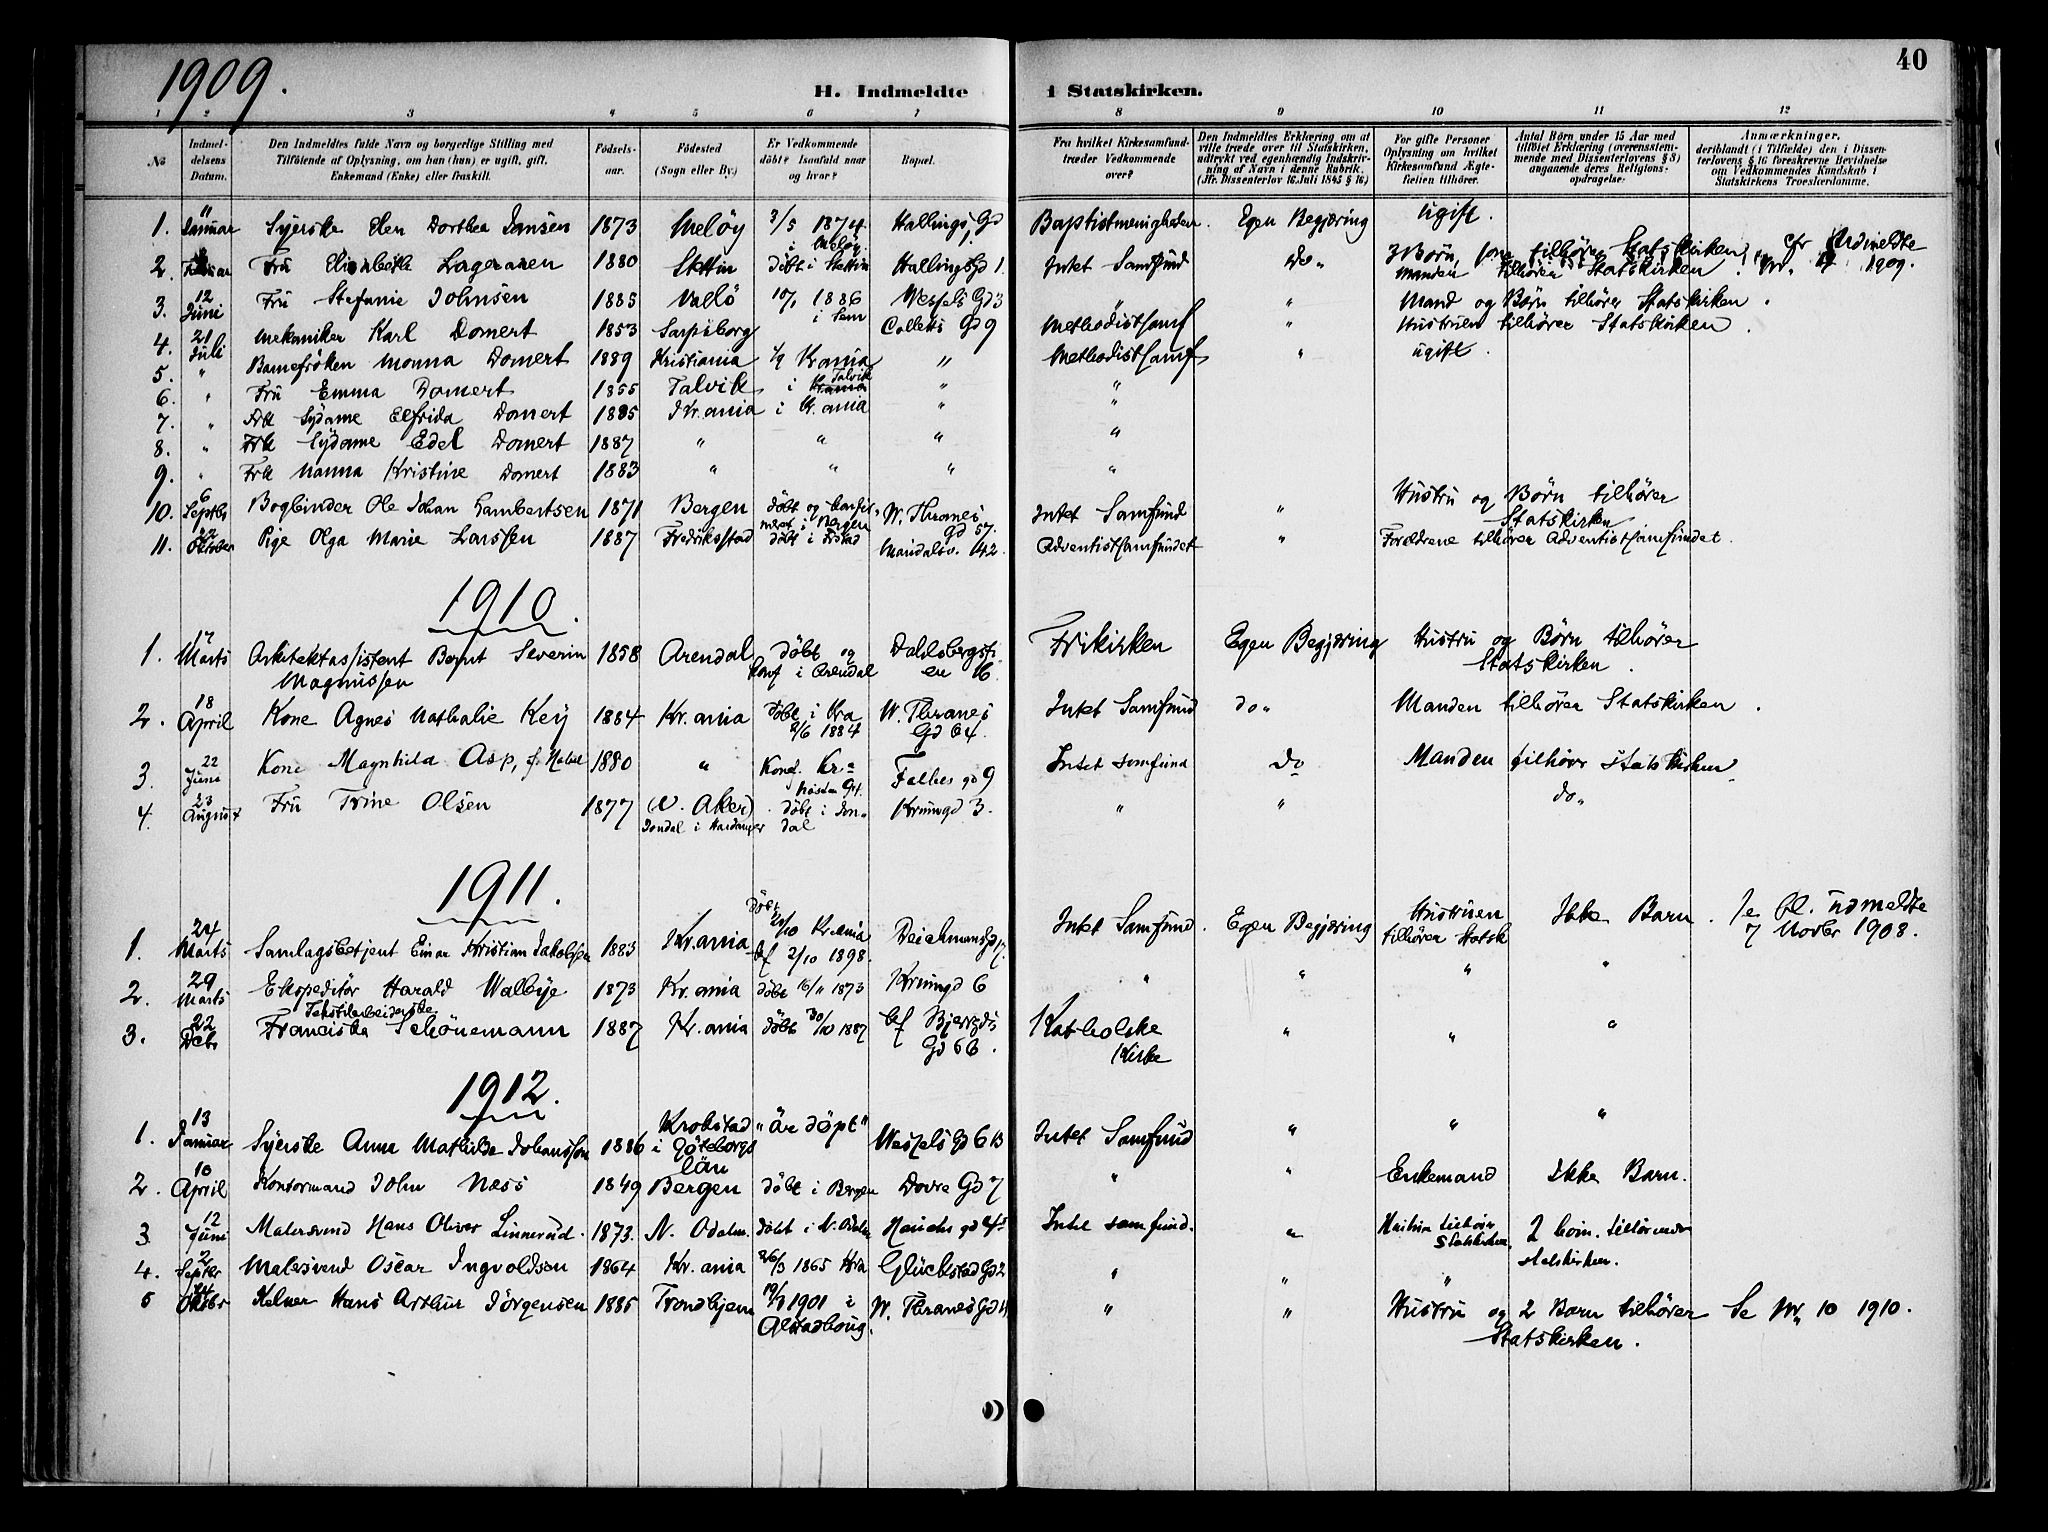 1909.
40
H. Indmeldte i Statskirken.
1 2 3 4 5 6 7 8 9 10 11 12
No
Indmel-
delsens
Datum.
Den Indmeldtes fulde Navn og borgerlige Stilling med
Tilföiende af Oplysning, om han (hun) er ugift, gift,
Enkemand (Enke) eller fraskilt.
Födsels-
aar.
Födested
(Sogn eller By.)
Er Vedkommende
döbt? Isaafald naar
og hvor?
Bopæl.
Fra hvilket Kirkesamfund-
træder Vedkommende
over?
Den Indmeldtes Erklæring om at
ville træde over til Statskirken,
udtrykt ved egenhændig Indskriv-
ning af Navn i denne Rubrik.
(Jfr. Dissenterlov 16. Juli 1845 § 16)
For gifte Personer
Oplysning om hvilket
Kirkesamfund Ægte-
fællen tilhörer.
Antal Börn under 15 Aar med
tilföiet Erklæring (overensstem-
mende med Dissenterlovens § 8)
angaaende deres Religions-
opdragelse.
Anmærkninger,
deriblandt (i Tilfælde) den i Dissen-
terlovens § 16 foreskrevne Bevidnelse
om Vedkommendes Kundskab i
Statskirkens Troeslærdomme.
1. 11 Januar Syerske Elen Dorthea Jansen 1873 Meløy 3/5 1874 i Meløy. Hallings Gd 1 Baptistmenigheden. Egen Begjæring ugift.
2. Fru Elisabeth 1880 Stettin döbt i Stettin Hallings Gd 1. Intet Samfund Do. 3 Börn, tilhörer Statskirken cfr Indmeldte
Manden tilhörer Statskirken. 1909.
3. 12 Juni Fru Stefanie Johnsen 1885 Vallö 10/1 1886 i Sem Wessels Gd 3 " " Mand og Börn tilhörer Statskirken.
4. 21 Juli Mekaniker Karl Domert 1853 Sarpsborg Colletts Gd 9 Methodistsamf " Hustruen tilhörer Statskirken.
5. " Barnefröken Monna Domert 1889 Kristiania Kr.ania " Methodistsamf " ugift.
6. " Fru Emma Domert 1855 Talvik i Talvik " "
7. " Frk Sydame Elfrida Domert 1885 Kr.ania i Kr.ania " "
8. " Frk Sydame Edel Domert 1887 " " " "
9. " Frk Nanna Kristine Domert 1883 " " " "
10. 6 Septbr Bogbinder Ole Johan Lambertsen 1871 Bergen döbt og konfirmert i Bergen W. Thranes Gd 57. Intet Samfund " Hustru og Börn tilhörer
Statskirken
11. Oktober Pige Olga Marie Larssen 1887 Fredriksstad döbt i Frstad Maridalsv. 142. Adventistsamfundet " Forældrene tilhörer Adventistsamfundet.
1910.
1. 17 Marts Arkitektassistent Bernt Severin 1858 Arendal Döbt og Dahlsbergsti- Frikirken Egen Begjæring Hustru og Börn tilhörer
Magnussen konf i Arendal en 16. Statskirken.
2. 18 April Kone Agnes Nathalie Key 1884 Kr.ania Döbt i Kra W. Thranes Intet Samfund do. Manden tilhörer Statskirken.
/6 1884 Gd 64.
3. 22 Juni Kone Magnhild Asp, f. 1880 " Konf. Kra Falbes gd 9 Intet Samfund do Manden tilhörer Statskirken
4. 23 August Fru Trine Olsen 1877 (V. Aker) döbt i Jon- Krumgd 3. " " do.
Jondal i Hardanger dal
1911.
1. 24 Marts Samlagsbetjent Einar Kristian Jakobsen 1883 Kr.ania Döbt /10 Kr.ania Deichmansgd 17. Intet Samfund. Egen Begjæring Hustruen Ikke Barn. Se Bl. Udmeldte
2/10 1898. tilhörer Statsk 7 Novbr 1908.
2. 29 Marts Ekspeditör Harald Walbye 1873 Kr.ania döbt 16/11 1873 Krumgd 6 " " " "
3. 22 Dcbr Tekstilarbeiderske
Franciska Schönemann 1887 Kr.ania döbt 30/10 1887 Bjerregds Katholske " " "
Gd 66. Kirke
1912.
1. 13 Januar Syerske Anna Mathilda Johansson 1886 Krokstad i Göteborgs län "är döpt" Wessels Gd 6 B Intet Samfund " " "
2. 10 April Kontormand John Næss 1849 Bergen döbt i Bergen Dovre Gd 7 " " Enkemand Ikke Barn.
3 12 Juni Malersvend Hans Oliver Linnerud. 1873. N. Odalen. Döbt i N. Odalen gd 45 Intet Samfund. " Hustru tilhörer Statskirken. 2 börn. tilhörende
statskirken.
4. 2 Septbr Malersvend Oscar Ingvoldsen 1864 Kr.ania 26/3 1865 Kra Glückstad Gd 2 " " "
5 Oktbr Kelner Hans Arthur Jörgensen 1885 Trondhjem 1901 i W. Thranes Gd " " Hustru og 2 Barn tilhörer Se Nr. 10 1910.
Statskirken.